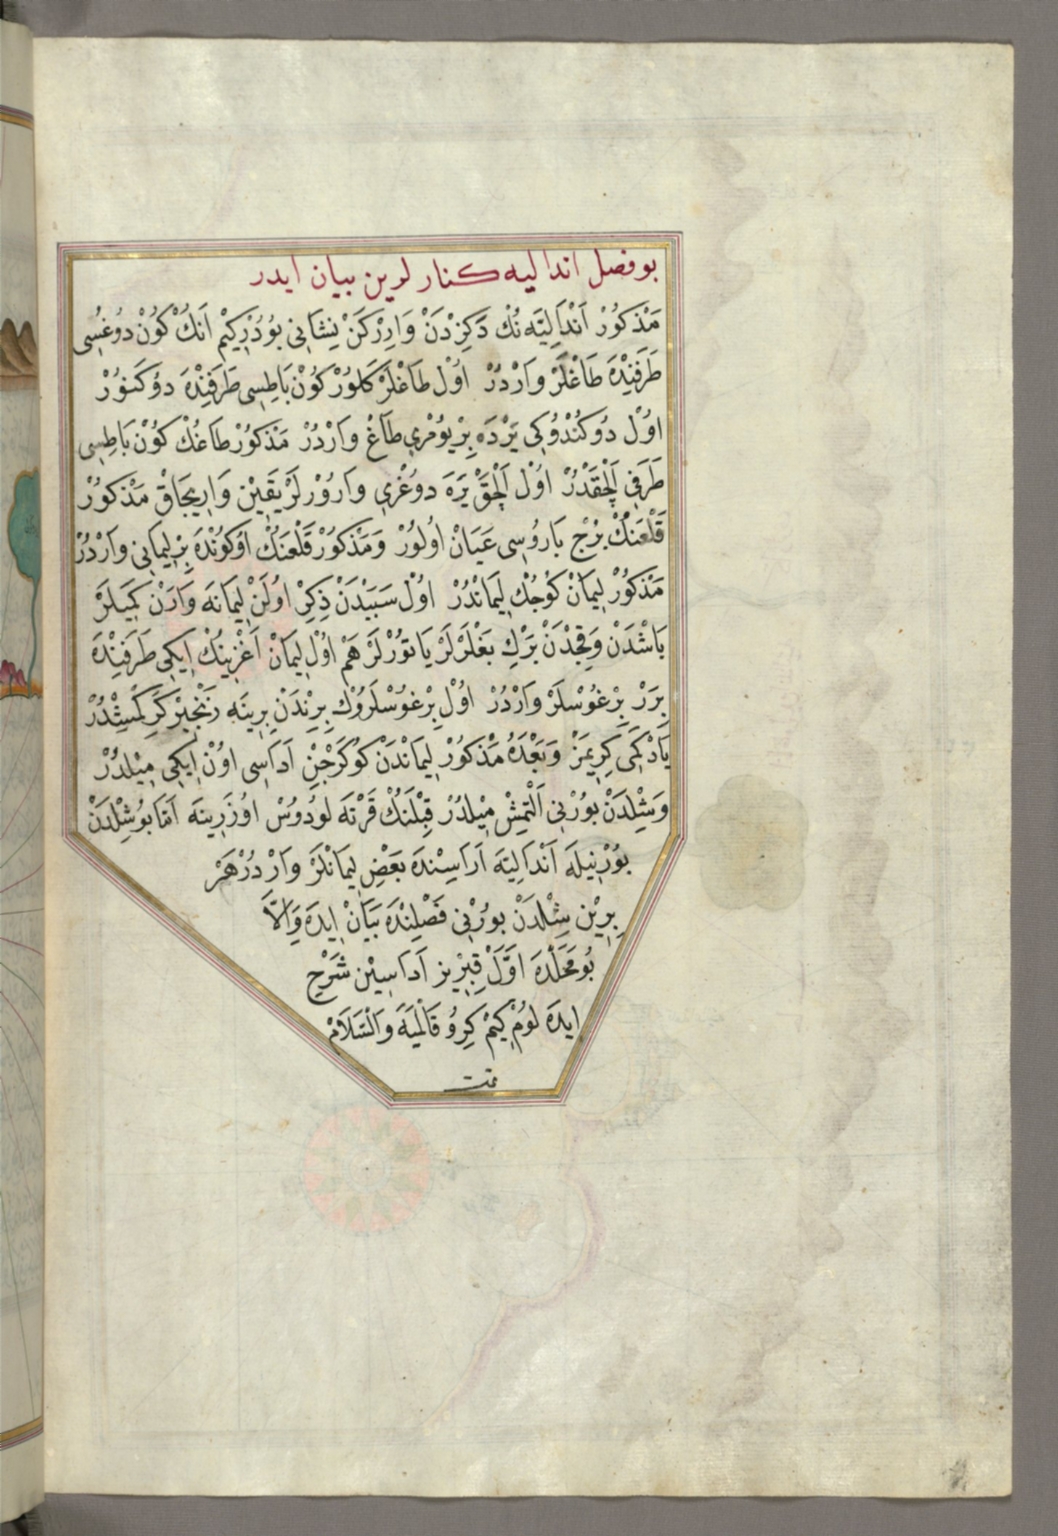 بو فصل اندالیه کنار لرین بیان ایدر
مَذْكُورْ اَنْدَالِیَه نُكْ دَكِزْدَنْ وَارِرْكَنْ نِشَانِی بُودُرْكِیمْ اَنُكْ كُونْ دوُغْسُی
طَرَفِنْدَه طَاغْلَرْ وَارْدُرْ اوُلْ طَاغْلَرْ كَلوُرْ كُونْ بَاطِسِی طَرَفِنْدَه دوُكَنوُرْ
اوُلْ دوُكَنْدوُكِی یَرْدَه بِرْ یوُمْرِی طَاغْ وَارْدُرْ مَذْكوُرْ طَاغُكْ كوُنْ بَاطِسِی
طَرَفِی اَلْچَقْدُرْ اوُلْ اَلْچَقْ یَرَه دوُغْرِی وَارُورْلَرْ یَقِینْ وَارِیجَاقْ مَذْكوُرْ
قَلْعَنُكْ بُرْجْ بَاروُسِی عَیَانْ اوُلوُرْ وَمَذْكوُرْ قَلْعَنُكْ اوُكوُنْدَه بِرْ لِیمَانِی وَارْدُرْ
مَذْكوُرْ لِیمَانْ كوُچُكْ لِیمَانْدُرْ اوُلْ سَبَبْدَنْ ذِكِرْ اوُلَنْ لِیمَانَه وَارَنْ كَمِیلَرْ
بَاشْدَنْ وَقِچْدَنْ بَرْكْ بَغْلَرْلَرْ یَاتوُرْلَرْ هَمْ اوُلْ لِیمَانْ اَغْزِینُكْ اِیكِی طَرَفِنْدَه
بِرَرْ بِرْغوُسْلَرْ وَارْدُرْ اوُلْ بِرْغوُسْلَروُكْ بِرِنْدَنْ بِرِینَه زَنْجِیرْ كَرِلْمِشْدُرْ
یَادْ كَمِی كِرِیمَزْ وَبَعْدَهُ مَذْكوُرْ لِیمَانْدَنْ كوُكَرْجِنْ اَدَاسِی اوُنْ اِیكِی مِیْلدُرْ
وَشِلِدَنْ بوُرْنِی اَلْتْمِشْ مِیْلدُرْ قِبْلَنُكْ قَرْتَه لوُدوُسْ اوُزَرِینَه اَمَّا بوُ شِلِدَنْ
بوُرْنِیلَه اَنْدَالِیَه اَرَاسِنْدَه بَعْضِ لِیمَانْلَرْ وَارْدُرْ هَرْ
بِرِینْ شِلِدَنْ بوُرْنِی فَصْلِنْدَه بَیَانْ اِیدَه وَاِلَّا
بوُ مَحَلْدَه اَوَّلْ قِبْرِیزْ اَدَاسِینْ شَرْحِ
اِیدَه لوُمْ كِیمْ كِروُ قَالْمِیَه وَالْسَّلَامْ
تمت